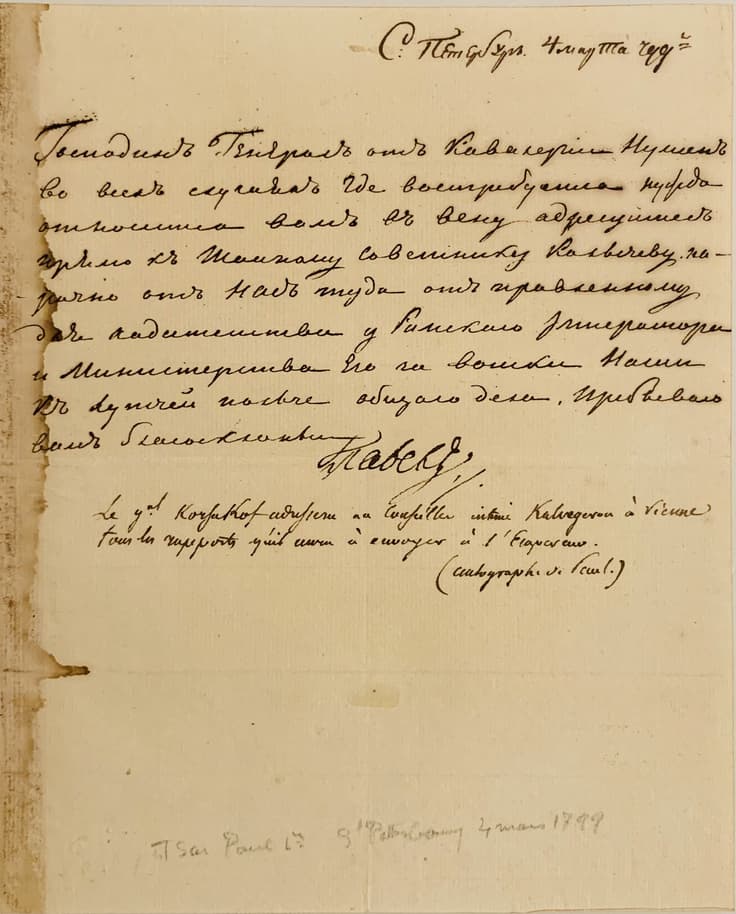 С: Петербург. 4 марта 799
Господинъ Генералъ отъ Кавалеріи Нумсенъ
во всехъ случаяхъ где востребуетца нужда
относитца вамъ въ вену адресуйтесь
прямо къ Тайному Советнику Колычеву, на-
рочно отъ насъ туда отъ правленному
для ходатества у Римскаго Императора
и Министерства Его за войски Наши
къ лутчей ползе общаго дела. Пребываю
вамъ благосклонны
Павелъ
Le gnal Korsakof adressera au Conseiller intime Kalitscheff à Vienne
tous les rapports qu'il aura à envoyer à l'Empereur.
(autographe de Paul.)
Tsar Paul 1er St Petersbourg 4 mars 1799